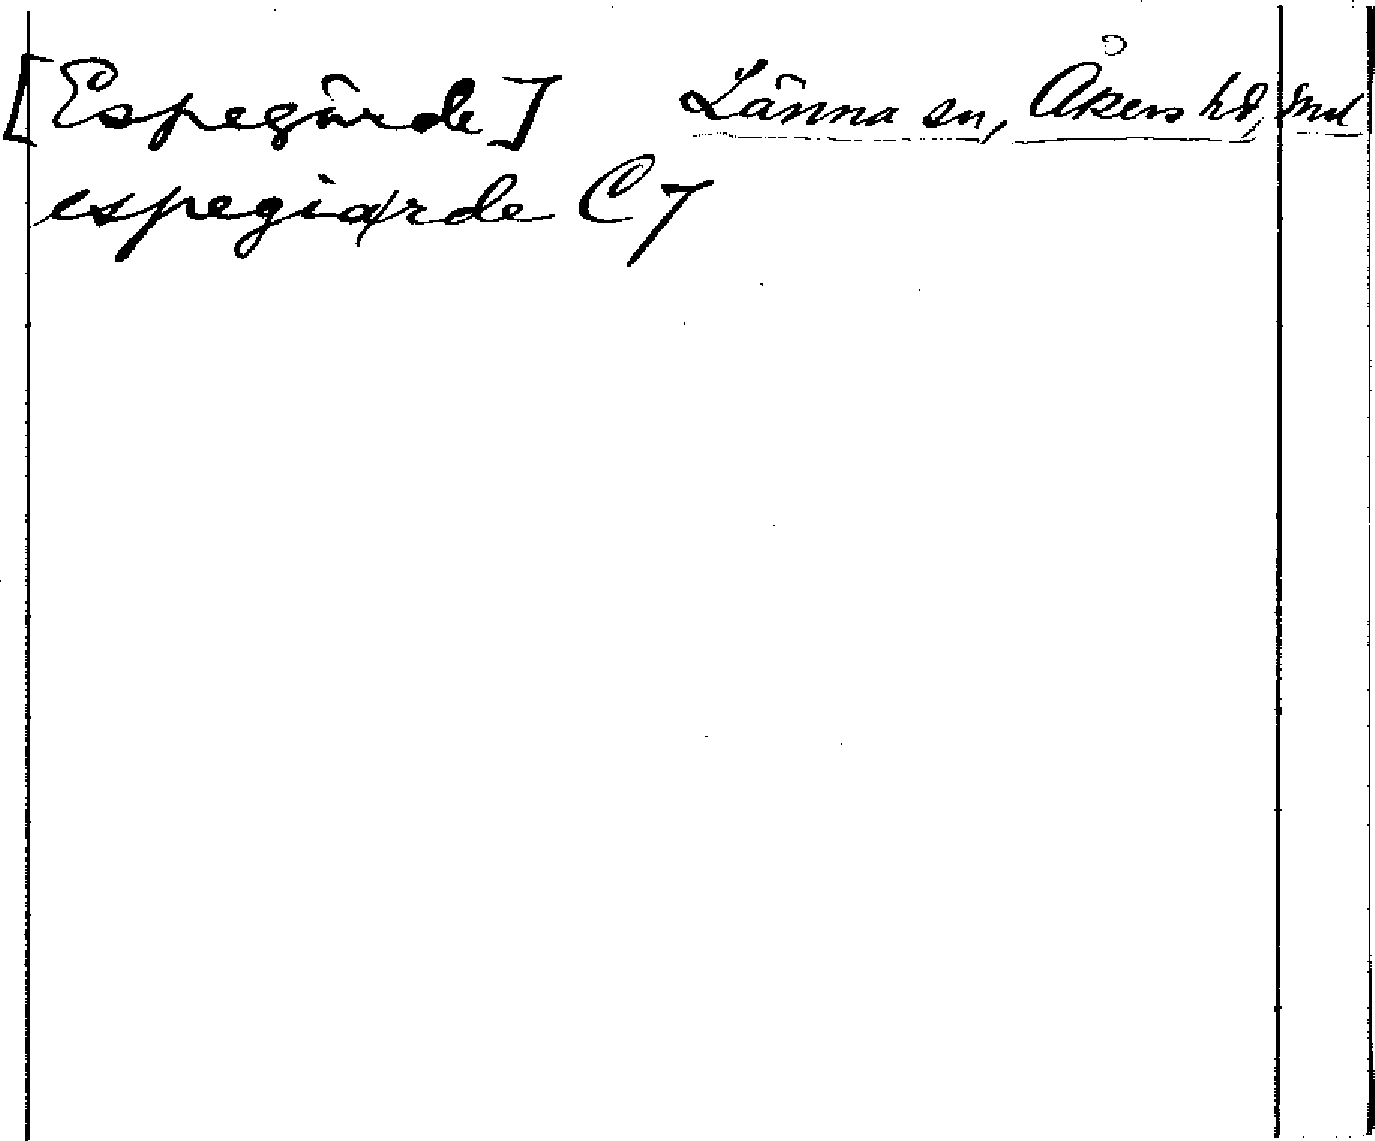 [Espegärde] Länna sn, Åkers hd, Sml
espegiærde C7